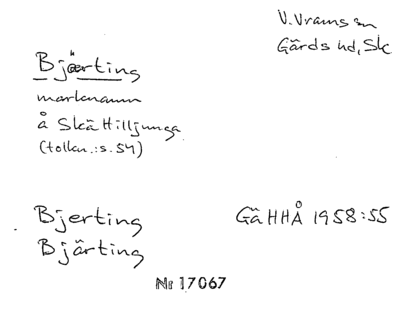 V. Vram sn
Gärds hd, Sk
Bjärting
marknamn
å Skä Hilljunga
(tolkn.: s. 54)
Bjerting
GäHHÅ 1958:55
Bjärting
Nr 17067